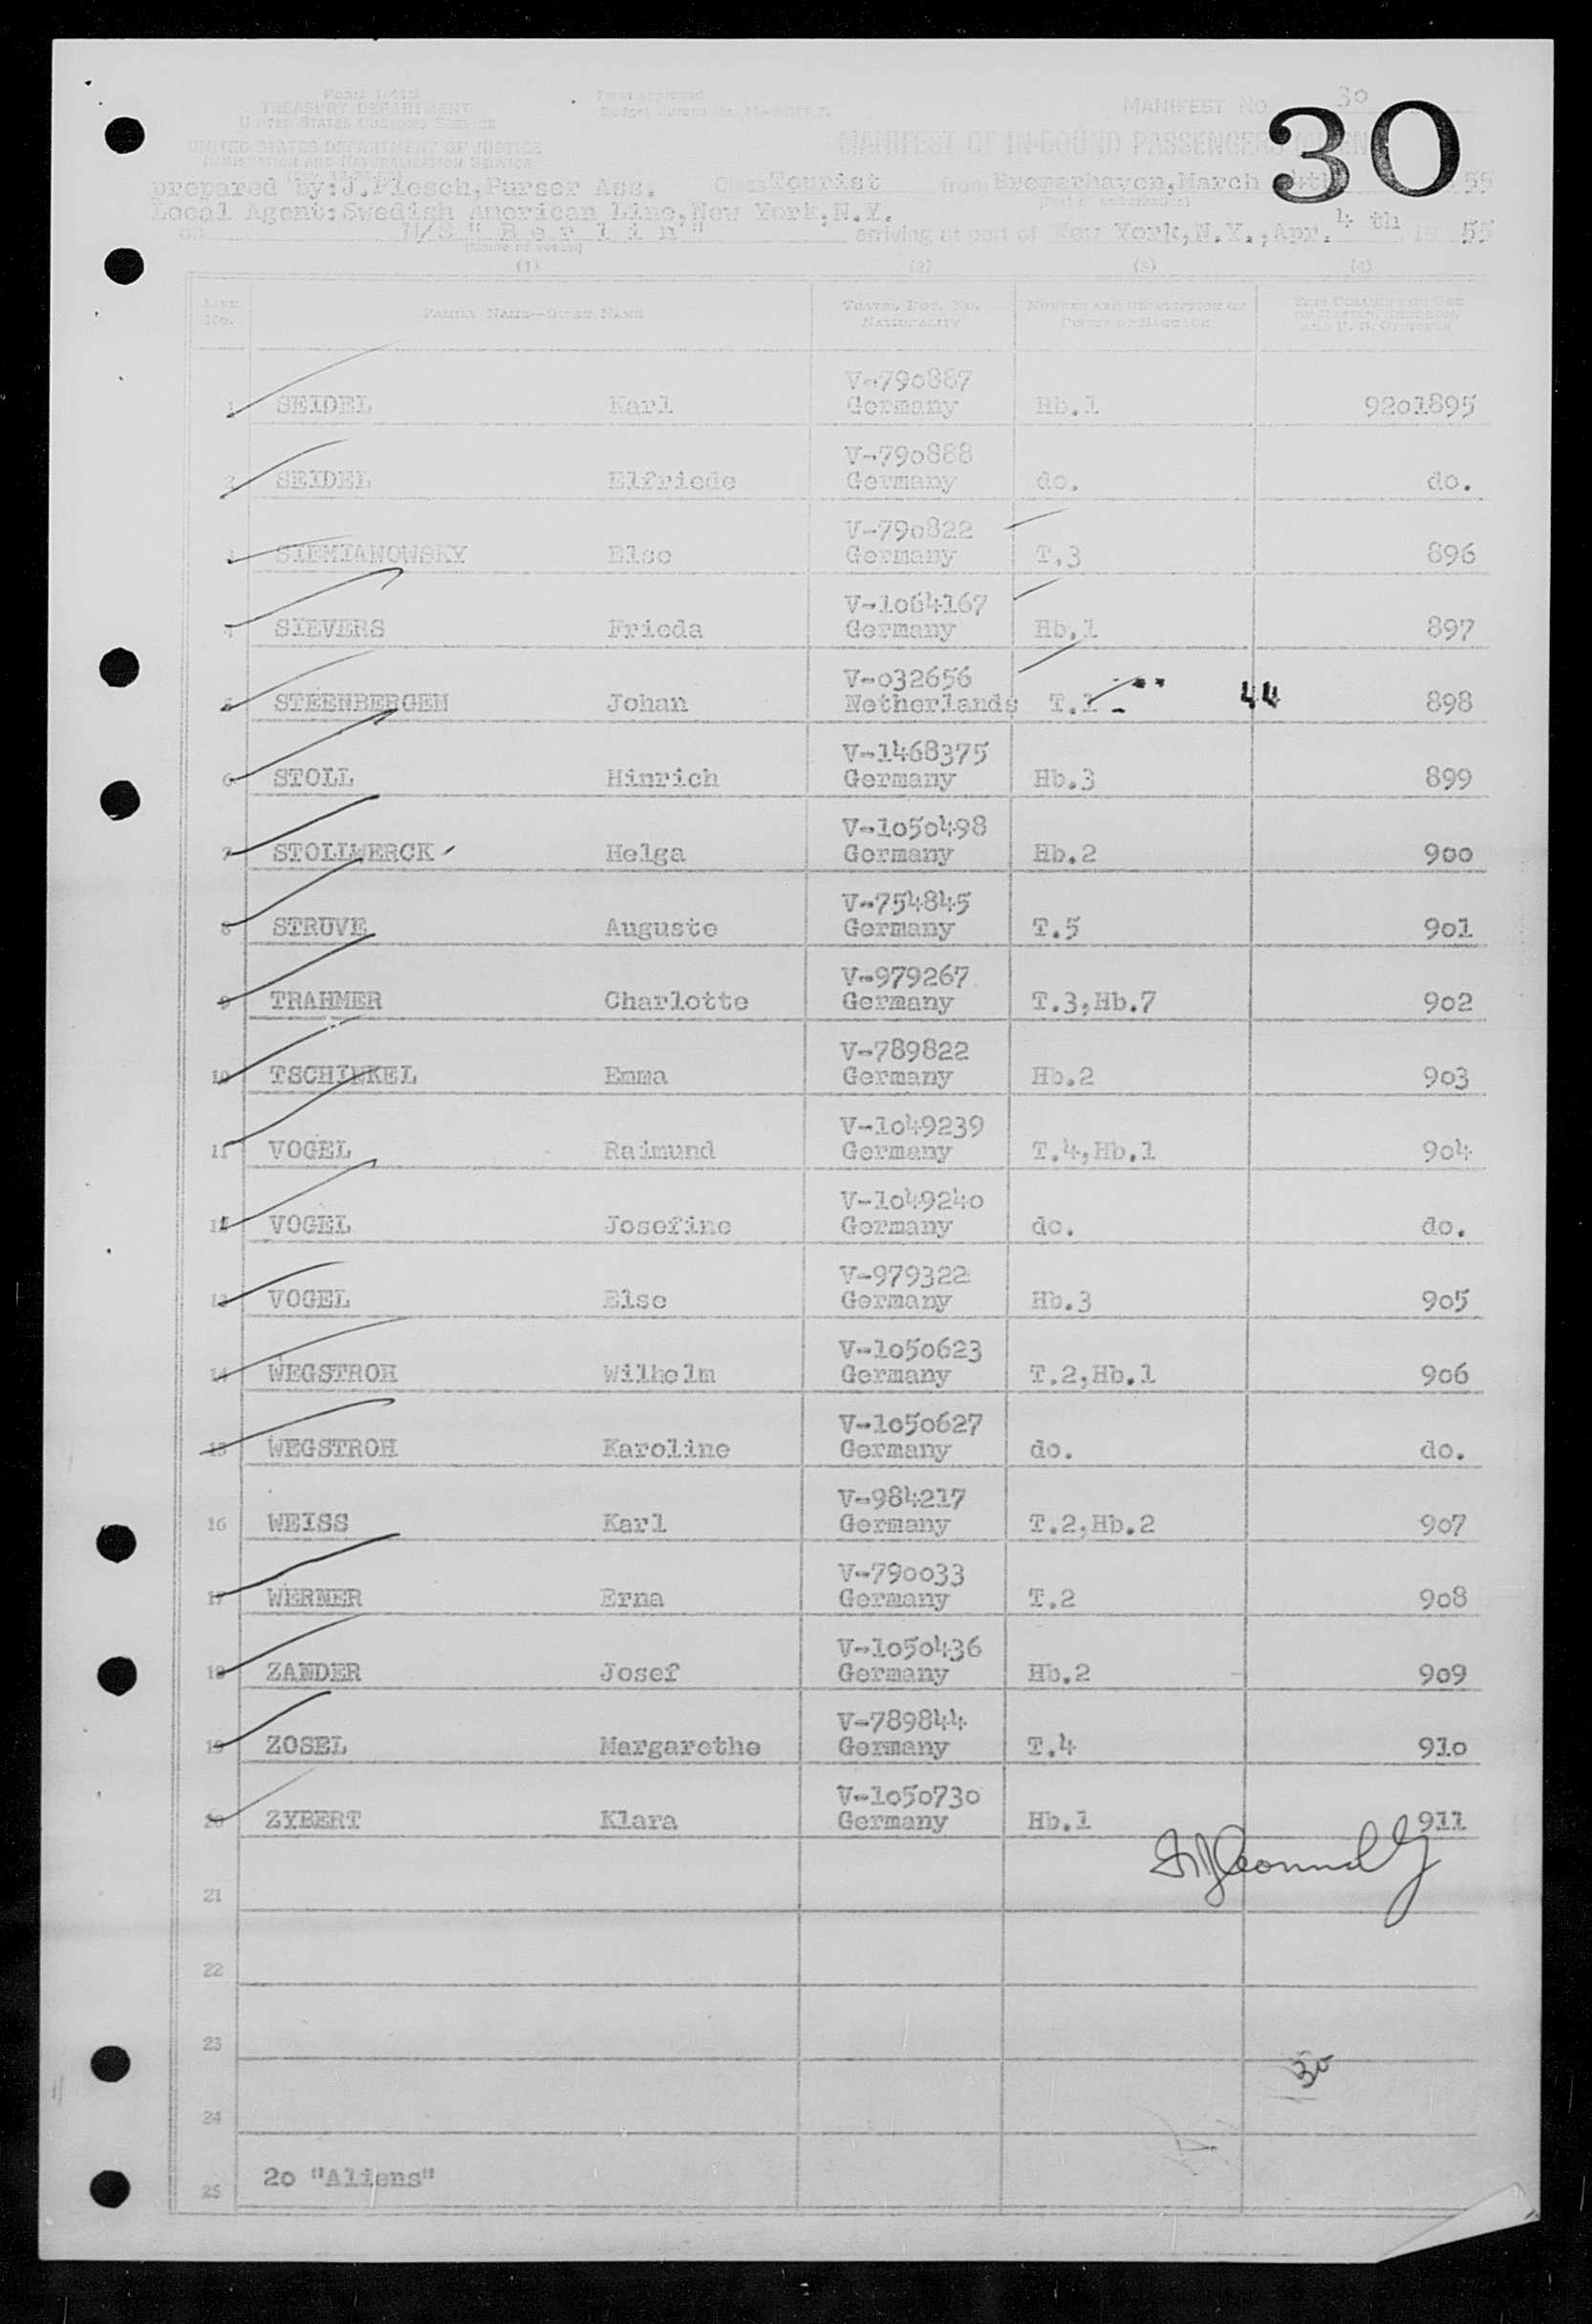 Form I-418
TREASURY DEPARTMENT
UNITED STATES CUSTOMS SERVICE
UNITED STATES DEPARTMENT OF JUSTICE
IMMIGRATION AND NATURALIZATION SERVICE
Form approved
Budget Bureau No.
MANIFEST No. 30
30
MANIFEST OF IN-BOUND PASSENGERS
prepared by:J.Plesch,Purser Ass. Class Tourist from Bremerhaven,March 55
Local Agent:Swedish American Line,New York,N.Y.
on M/S "B e r l i n" arriving at port of New York,N.Y.,Apr. 4 th 19 55
(Name of vessel)
(1) (2) (3) (4)
LINE No. FAMILY NAME—GIVEN NAME TRAVEL DOC. No. NATIONALITY NUMBER AND DESCRIPTION OF PIECES OF BAGGAGE THIS COLUMN FOR USE OF MASTER, SURGEON, AND U. S. OFFICERS
V-790887
1 SEIDEL Karl Germany Hb.1 9201895
V-790888
2 SEIDEL Elfriede Germany do. do.
V-790822
3 SIEMIANOWSKY Else Germany T.3 896
V-1064167
4 SIEVERS Frieda Germany Hb.1 897
V-032656
5 STEENBERGEN Johan Netherlands T.1 44 898
V-1468375
6 STOLL Hinrich Germany Hb.3 899
V-1050498
7 STOLLWERCK Helga Germany Hb.2 900
V-754845
8 STRUVE Auguste Germany T.5 901
V-979267
9 TRAHMER Charlotte Germany T.3,Hb.7 902
V-789822
10 TSCHINKEL Emma Germany Hb.2 903
V-1049239
11 VOGEL Raimund Germany T.4,Hb.1 904
V-1049240
12 VOGEL Josefine Germany do. do.
V-979322
13 VOGEL Else Germany Hb.3 905
V-1050623
14 WEGSTROH Wilhelm Germany T.2,Hb.1 906
V-1050627
15 WEGSTROH Karoline Germany do. do.
V-984217
16 WEISS Karl Germany T.2,Hb.2 907
V-790033
17 WERNER Erna Germany T.2 908
V-1050436
18 ZANDER Josef Germany Hb.2 909
V-789844
19 ZOSEL Margarethe Germany T.4 910
V-1050730
20 ZYBERT Klara Germany Hb.1 911
21
22
23
30
24
25 20 "Aliens"